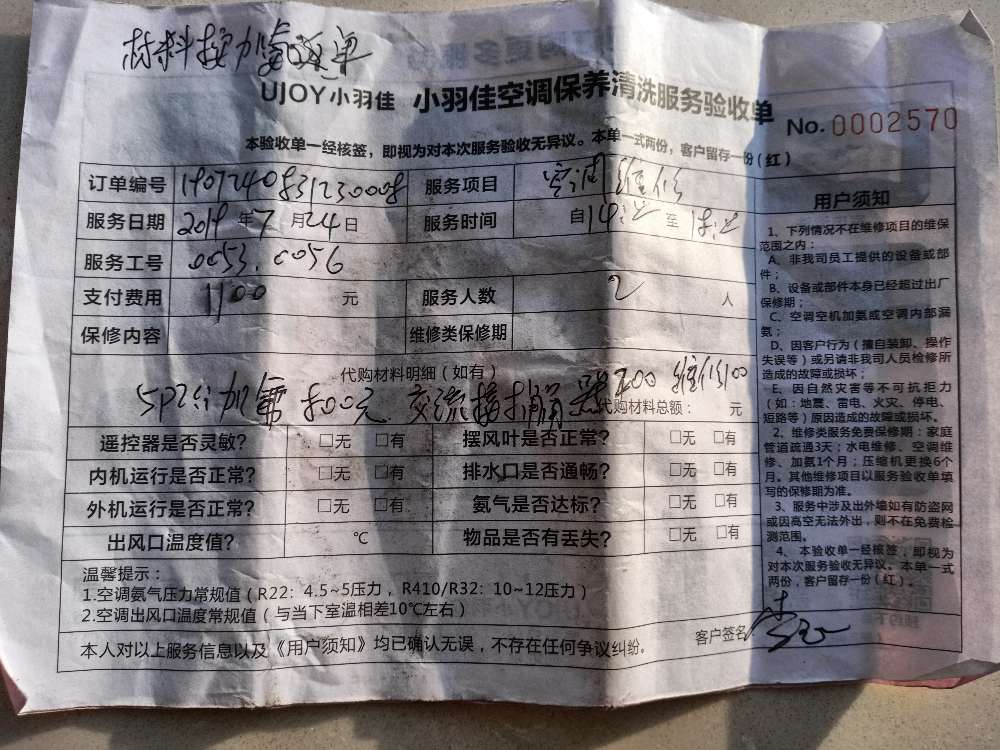 材料按加氨单
UJOY小羽佳 小羽佳空调保养清洗服务验收单
No. 0002570
本验收单一经核签，即视为对本次服务验收无异议。本单一式两份，客户留存一份（红）
订单编号 服务项目 空调维修
服务日期 2019年7月24日 服务时间 自14:至18:
服务工号 0053.0056
支付费用 1100 元 服务人数 2 人
保修内容 维修类保修期
代购材料明细（如有）
5P空调加氟 800元 交流接触器200 维修100
代购材料总额： 元
遥控器是否灵敏? □无 □有 摆风叶是否正常? □无 □有
内机运行是否正常? □无 □有 排水口是否通畅? □无 □有
外机运行是否正常? □无 □有 氨气是否达标? □无 □有
出风口温度值? ℃ 物品是否有丢失? □无 □有
温馨提示：
1.空调氨气压力常规值（R22：4.5~5压力，R410/R32：10~12压力）
2.空调出风口温度常规值（与当下室温相差10℃左右）
本人对以上服务信息以及《用户须知》均已确认无误，不存在任何争议纠纷。
客户签名
用户须知
1、下列情况不在维修项目的维保
范围之内：
A、非我司员工提供的设备或部
件；
B、设备或部件本身已经超过出厂
保修期；
C、空调空机加氨或空调内部漏
氨；
D、因客户行为（擅自装卸、操作
失误等）或另请非我司人员检修所
造成的故障或损坏；
E、因自然灾害等不可抗拒力
（如：地震、雷电、火灾、停电、
短路等）原因造成的故障或损坏。
2、维修类服务免费保修期：家庭
管道疏通3天；水电维修、空调维
修、加氨1个月；压缩机更换6个
月。其他维修项目以服务验收单填
写的保修期为准。
3、服务中涉及出外墙如有防盗网
或因高空无法外出，则不在免费检
测范围。
4、本验收单一经核签，即视为
对本次服务验收无异议。本单一式
两份，客户留存一份（红）。